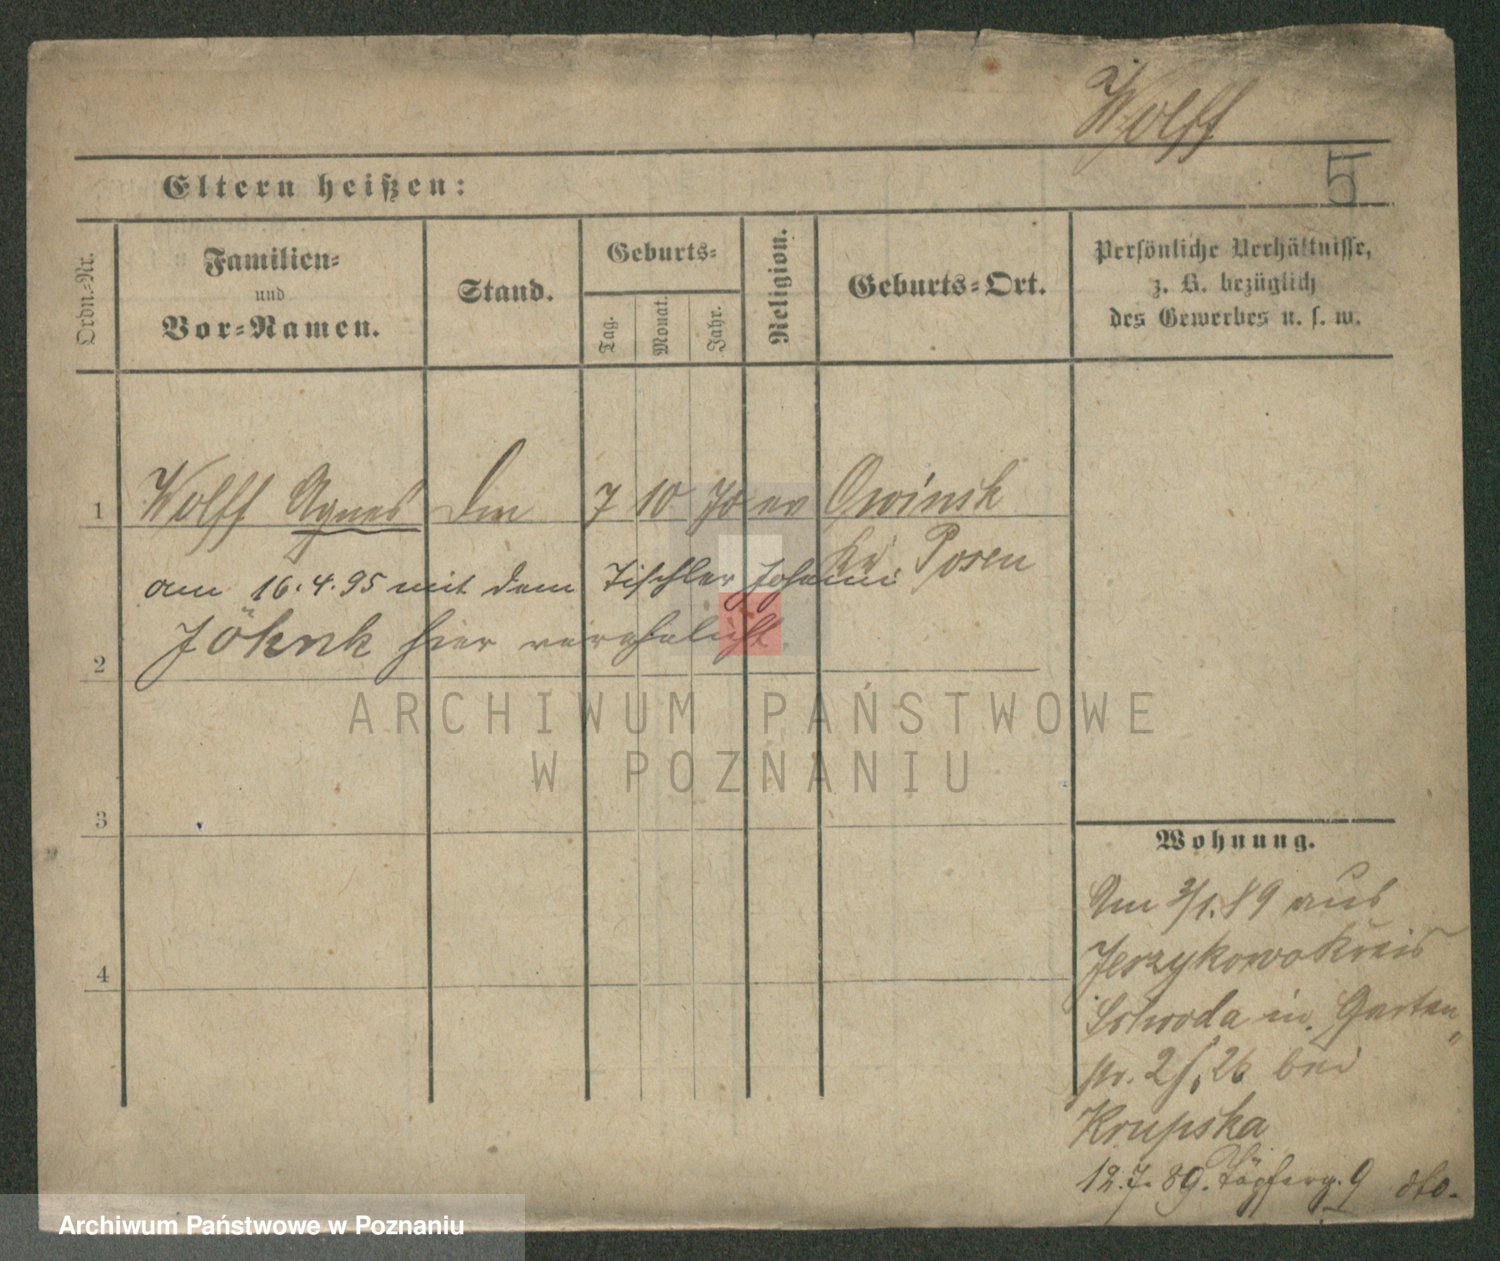 Wolff
5
Eltern heißen:
Ordn.-Nr.
Familien-
und
Vor-Namen.
Stand.
Geburts-
Tag.
Monat.
Jahr.
Religion.
Geburts-Ort.
Persönliche Verhältnisse,
z. B. bezüglich
des Gewerbes u. s. w.
1 Wolff Agnes 7 10 70 ev Owinsk
Kr Posen
am 16.4.95 mit dem Tischler Johann
Jöhnk hier verehelicht
2
3
4
Wohnung.
Am 3/1.89 aus
Jerzykowo Kreis
Schroda in Garten
str. 2 bei
Krupska
12.7.89. Töpferg. 9 dto.
ARCHIWUM PAŃSTWOWE
W POZNANIU
Archiwum Państwowe w Poznaniu